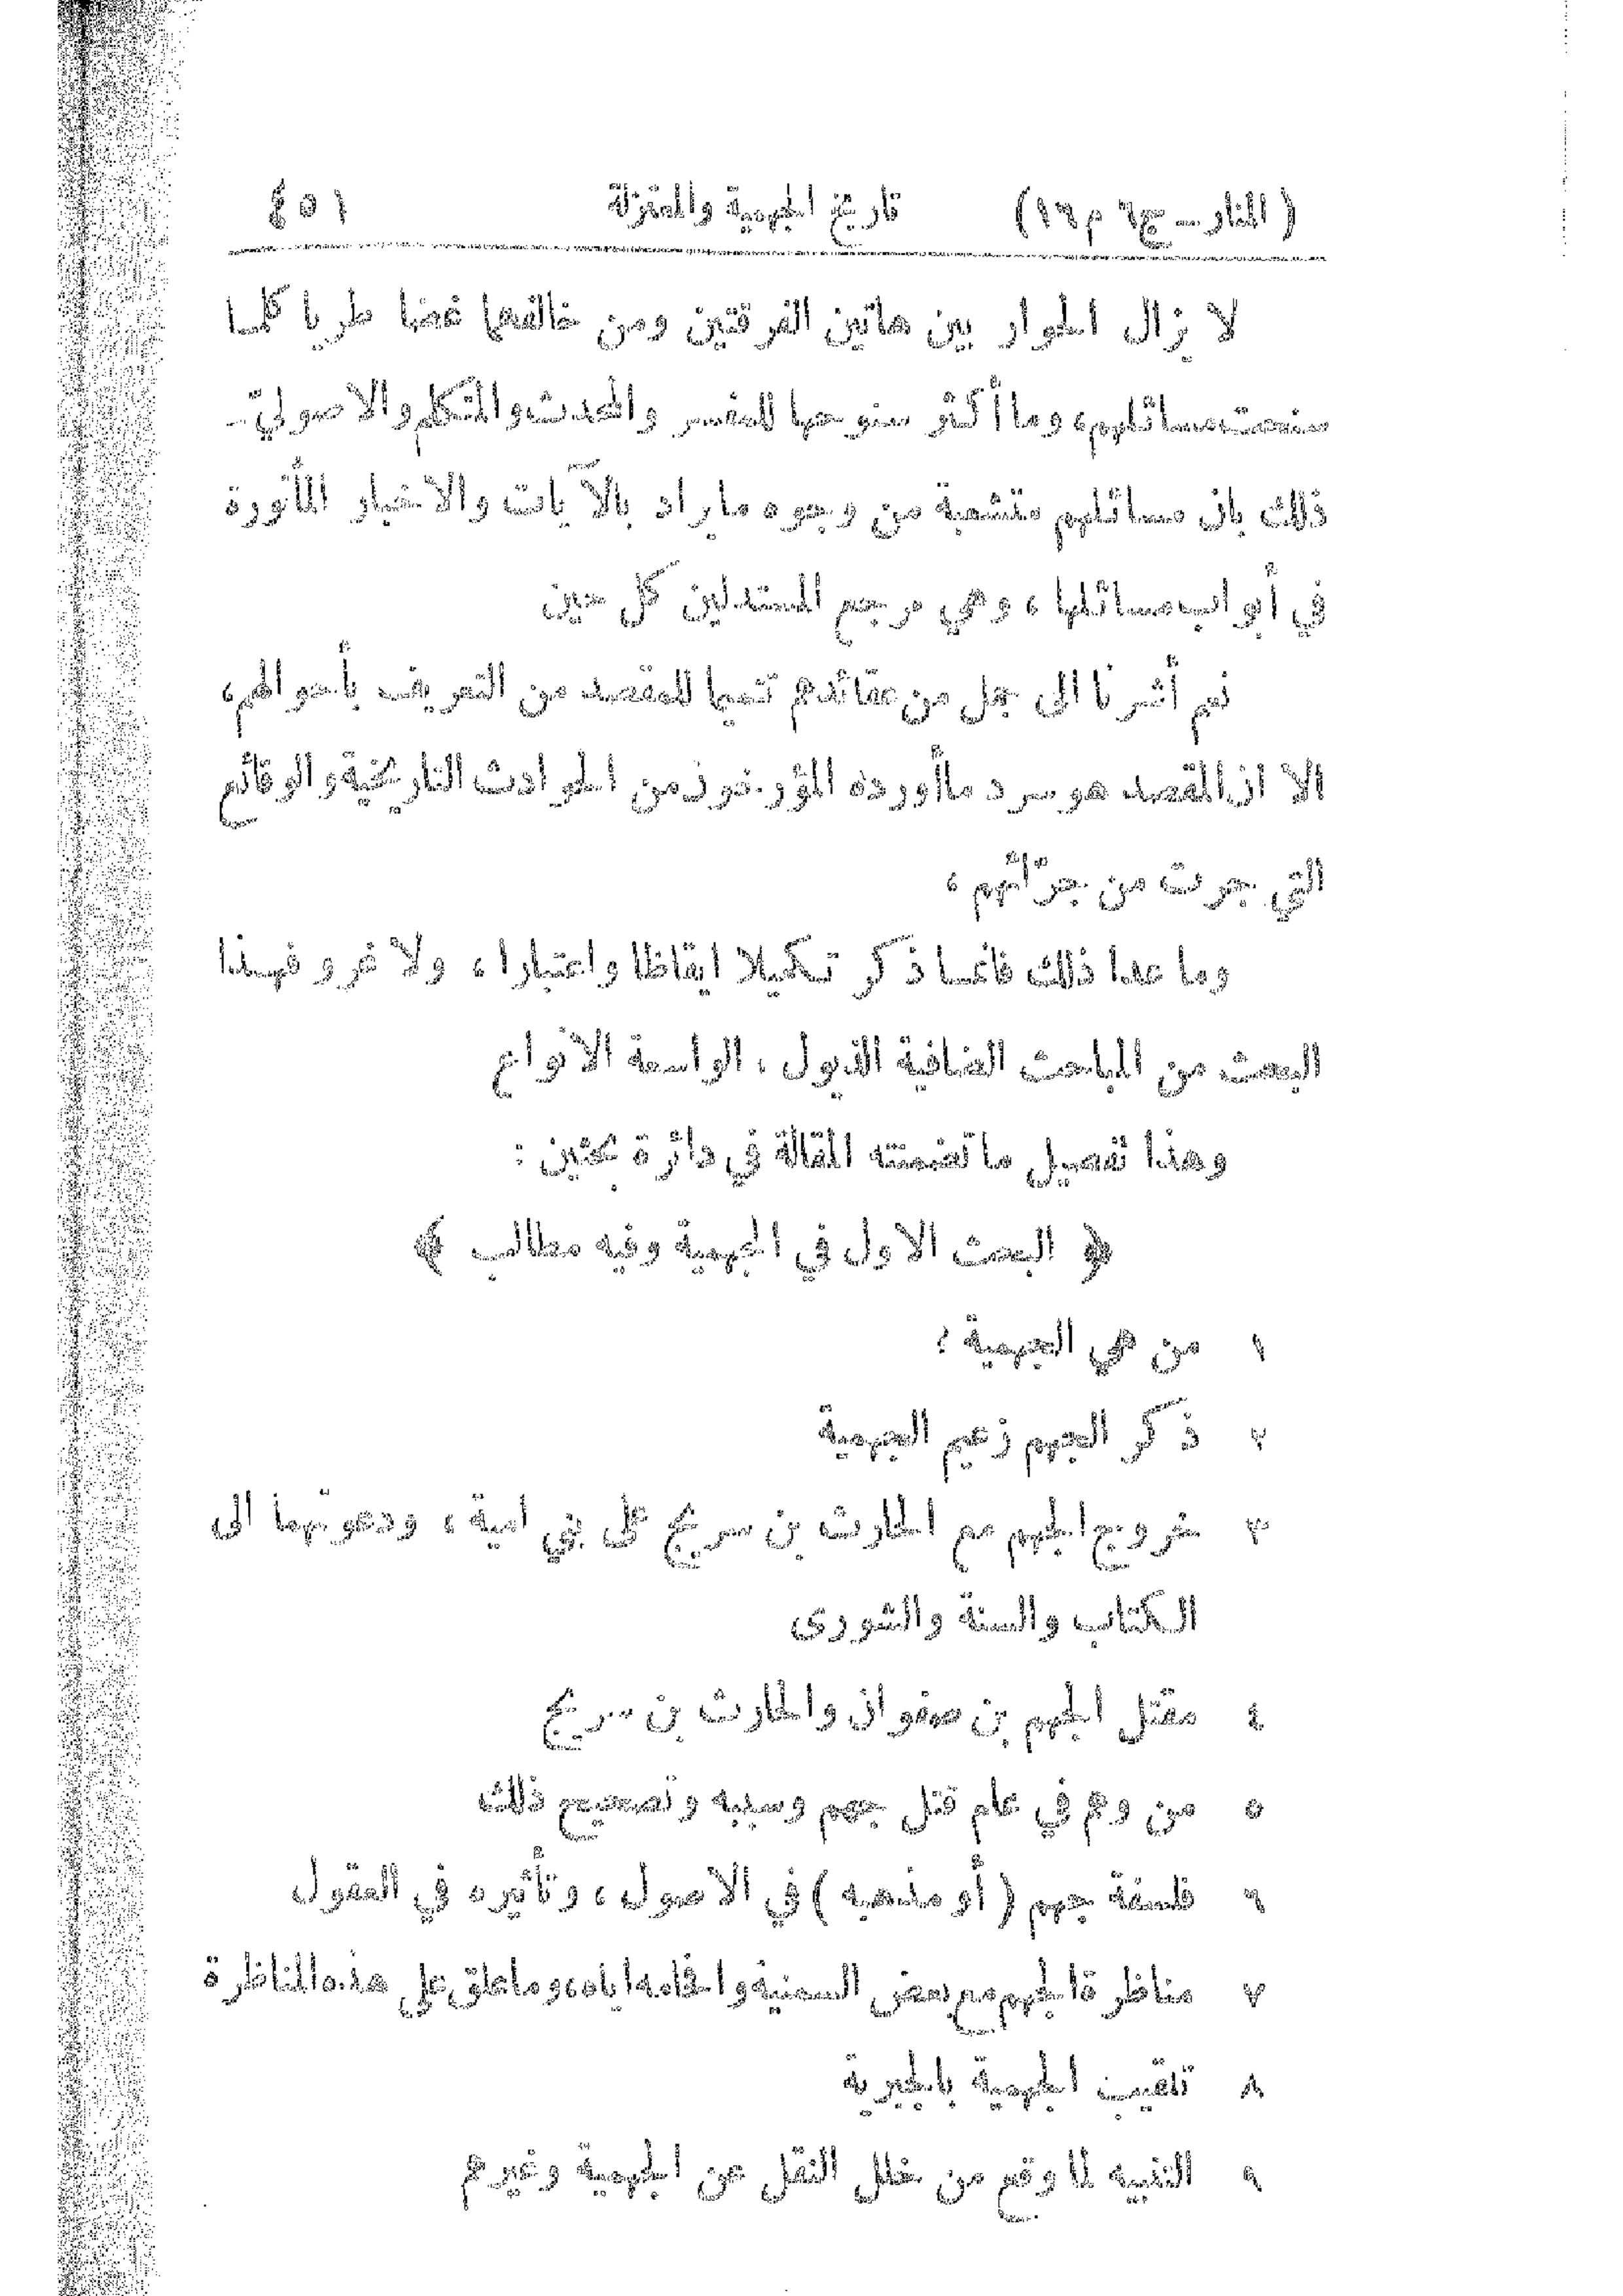 (المنار – ج ٦ م ١٦) تاريخ الجهمية والمعتزلة ٤٥١
لا يزال الحوار بين هاتين الفرقتين ومن خالفهما غضا طريا كلما
سنحت مسائلهم، وما أكثر سنوحها للمفسر والمحدث والمتكلم والاصوليّ –
ذلك بان مسائلهم متشعبة من وجوه ما يراد بالآيات والاخبار المأثورة
في أبواب مسائلها، وهي مرجع المستدلين كل حين
نعم أشرنا الى جمل من عقائدهم تتميما للمقصد من التعريف بأحوالهم،
الا ان المقصد هو سرد ما أورده المؤرخون من الحوادث التاريخية والوقائع
التي جرت من جرّائهم،
وما عدا ذلك فانما ذكر تكميلا ايقاظا واعتبارا، ولا غرو فهذا
البحث من المباحث الضافية الذيول، الواسعة الانواع
وهذا تفصيل ما تضمنته المقالة في دائرة بحثين :
﴿ البحث الاول في الجهمية وفيه مطالب ﴾
١ من هي الجهمية ؟
٢ ذكر الجهم زعيم الجهمية
٣ خروج الجهم مع الحارث بن سريج على بني امية، ودعوتهما الى
الكتاب والسنة والشورى
٤ مقتل الجهم بن صفوان والحارث بن سريج
٥ من وهم في عام قتل جهم وسببه وتصحيح ذلك
٦ فلسفة جهم (أو مذهبه) في الاصول، وتأثيره في العقول
٧ مناظرة الجهم مع بعض السمنية وافحامه اياه، وما علق على هذه المناظرة
٨ تلقيب الجهمية بالجبرية
٩ التنبيه لما وقع من خلل النقل عن الجهمية وغيرهم